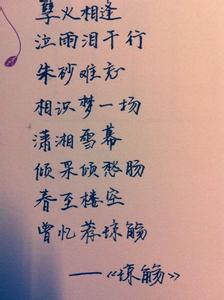 孽火相逢
泣雨泪千行
朱砂难忘
相识梦一场
潇湘雪幕
倾杲倾愁肠
春至楼空
曾忆荐琼觞
——《琼觞》